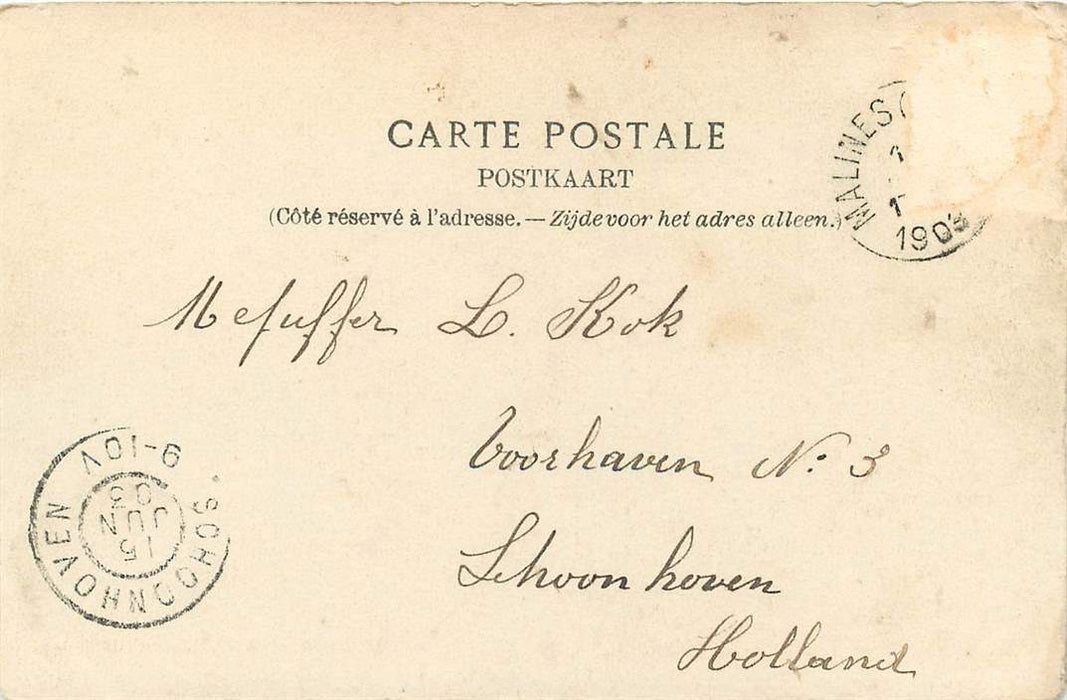 CARTE POSTALE
POSTKAART
(Côté réservé à l'adresse. — Zijde voor het adres alleen.)
MALINES (
1
1
1903
Mejuffer L. Kok
Voorhaven No. 3
Schoonhoven
Holland
SCHOONHOVEN
15
JUN
03
9-10V